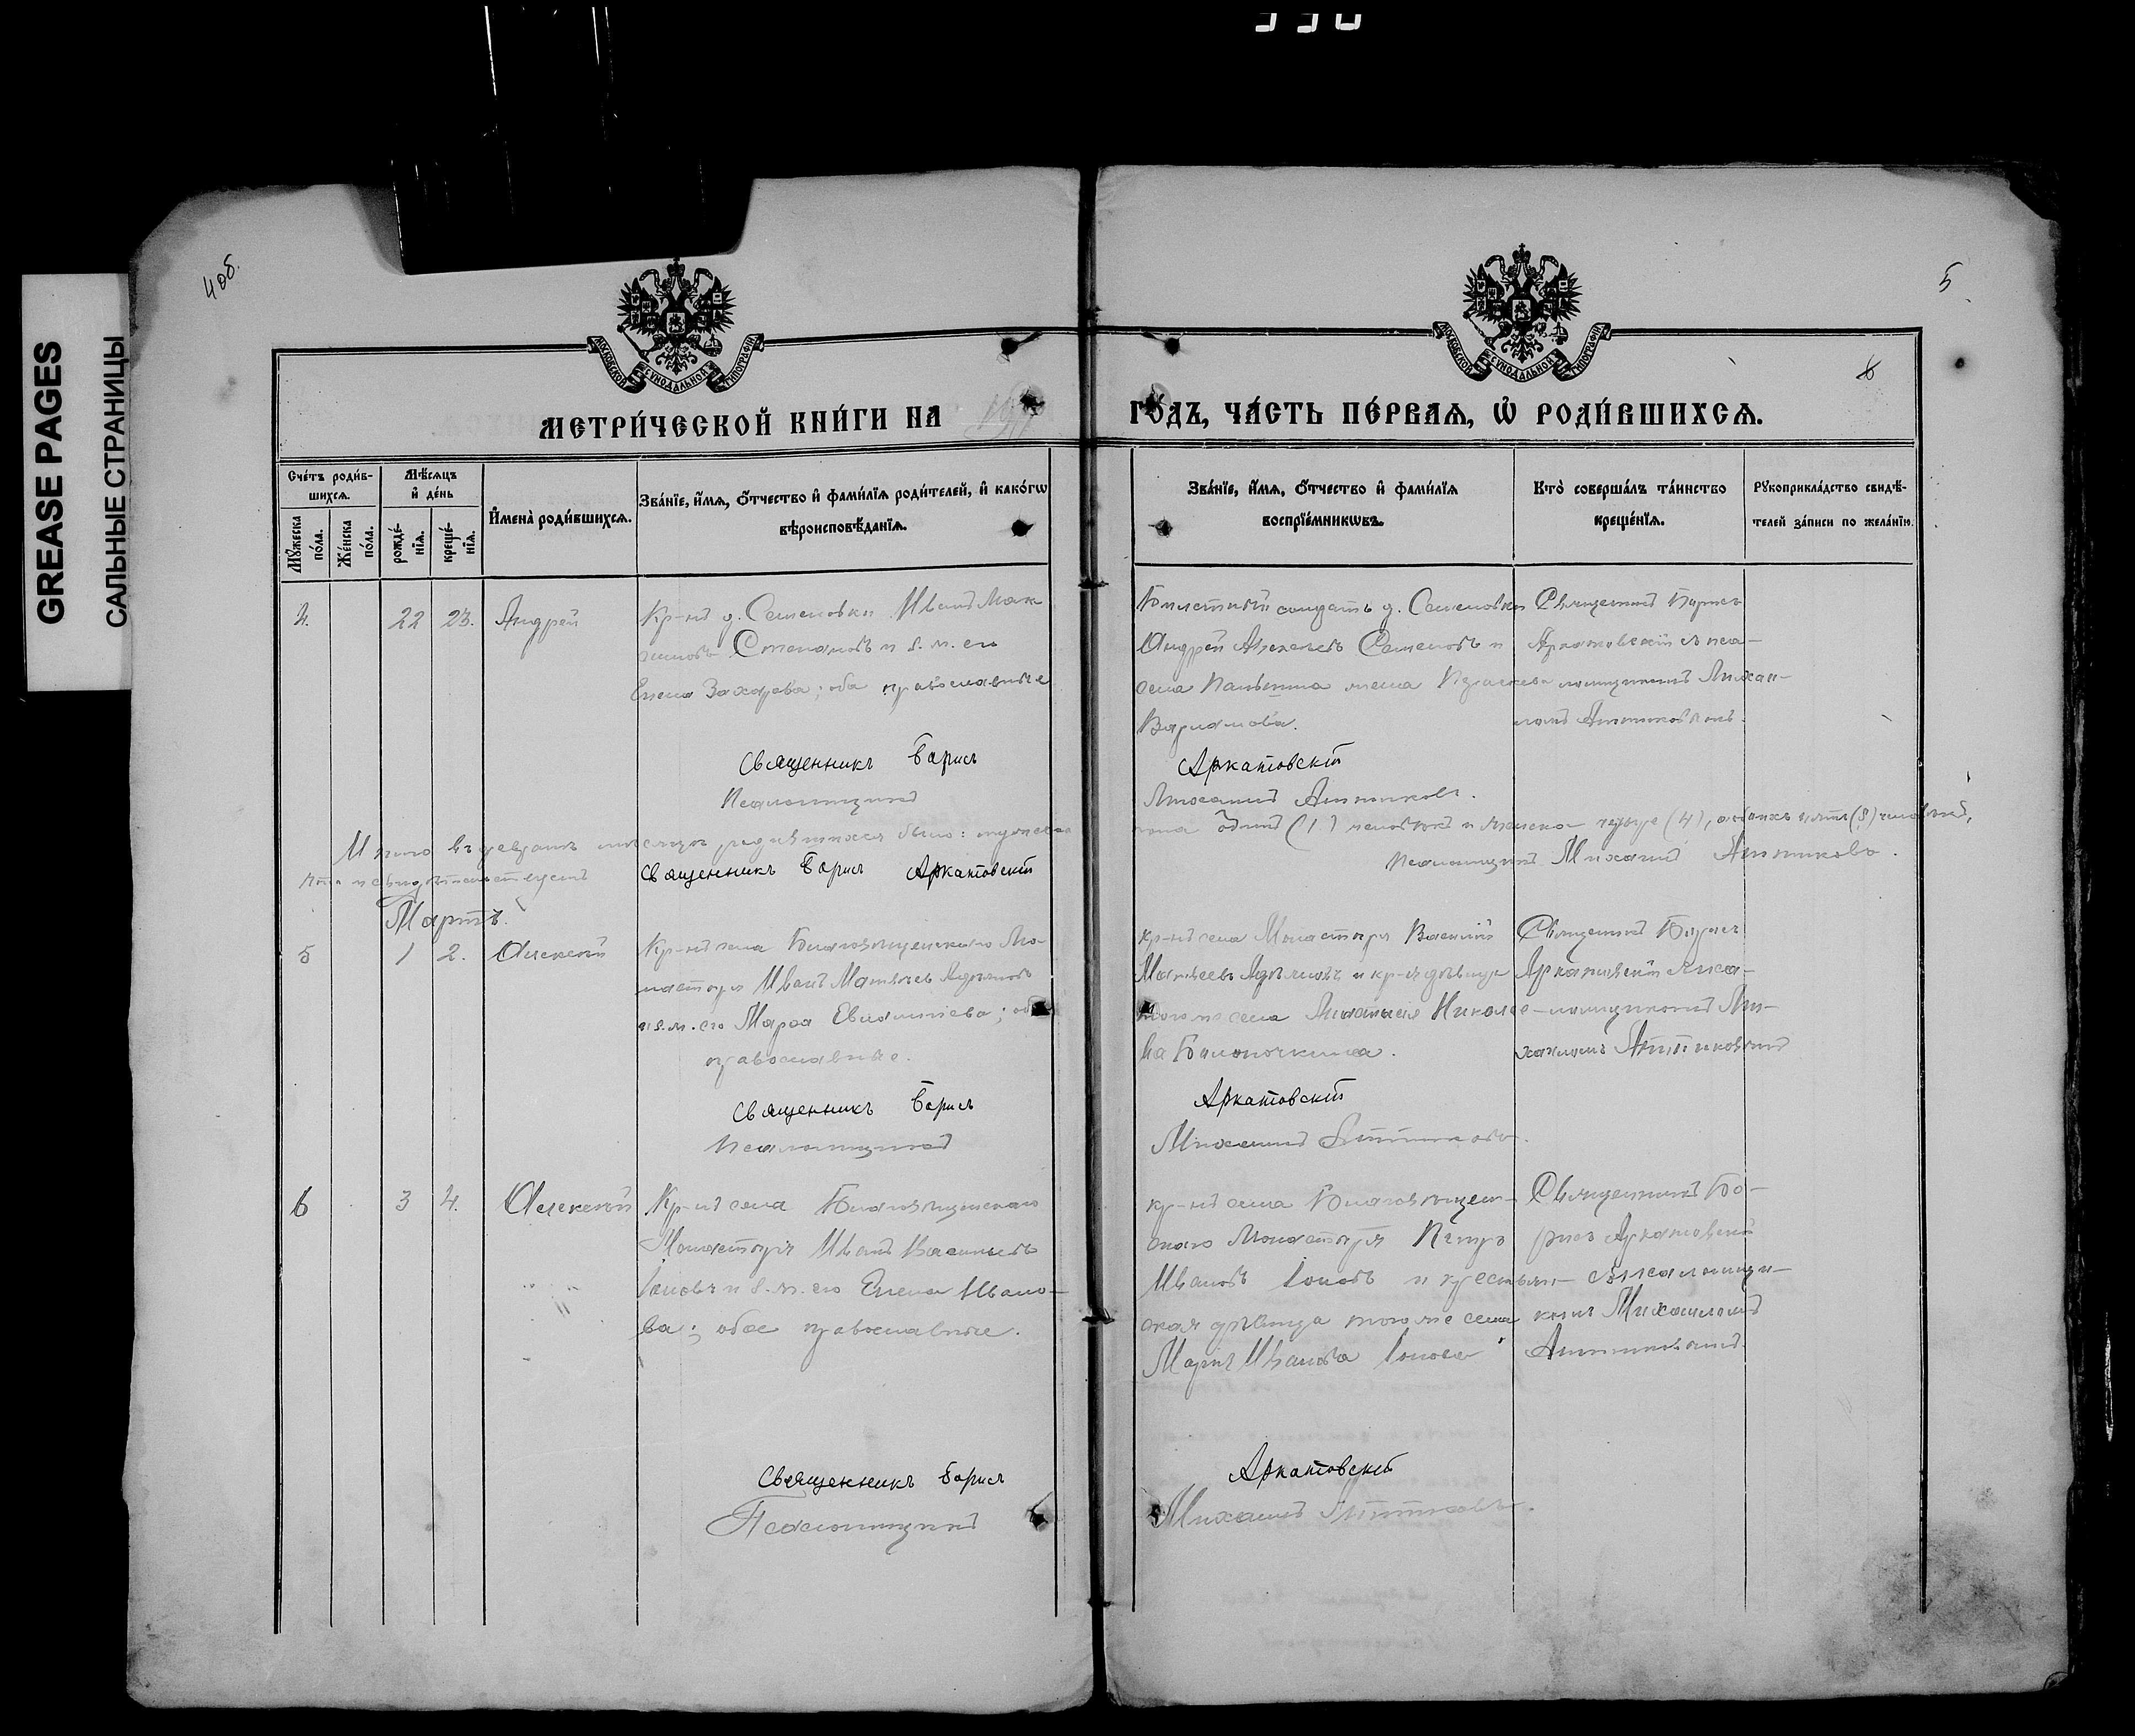 GREASE PAGES
САЛЬНЫЕ СТРАНИЦЫ
4 об.
5
МОСКОВСКОЙ СѴНОДАЛЬНОЙ ТИПОГРАФІИ
МОСКОВСКОЙ СѴНОДАЛЬНОЙ ТИПОГРАФІИ
6
МЕТРИ́ЧЕСКОЙ КНИ́ГИ НА
ГО́ДЪ, ЧА́СТЬ ПЕ́РВАЯ, Ѡ҆ РОДИ́ВШИХСЯ.
Сче́тъ роди́в-
шихся.
Мꙋ́жеска по́ла.
Же́нска по́ла.
Мѣ́сяцъ
и҆ де́нь
рожде́-
нїя.
креще́-
нїя.
И҆мена̀ роди́вшихся.
Зва́нїе, и҆́мя, ѻ҆́тчество и҆ фами́лїя роди́телей, и҆ како́гѡ
вѣроисповѣ́данїя.
Зва́нїе, и҆́мя, ѻ҆́тчество и҆ фами́лїя
воспрїе́мникѡвъ.
Кто̀ соверша́лъ та́инство
креще́нїя.
Рꙋкоприкла́дство свидѣ́-
телей за́писи по жела́нїю.
4.
22
23.
Андрей
Кр-нъ д. Семеновки Иванъ Мак
симовъ Степановъ и з. ж. его
Елена Захарева; оба православные
солдатъ д. Семеновки
Андрей Алексѣевъ Семеновъ и
села
Варламова.
Священникъ Борисъ
Аркатовскій съ псал-
ломщикомъ Михаи-
ломъ Аттиковымъ.
Священникъ Борисъ
Аркатовскій
Псаломщикъ
Михаилъ Аттиковъ.
Итого въ февралѣ мѣсяцѣ родившихся было: мужеска
пола одинъ (1) человѣкъ и женска четыре (4), обоихъ пять (5) человѣкъ,
что и свидѣтельствуемъ
Священникъ Борисъ Аркатовскій
Псаломщикъ Михаилъ Аттиковъ.
Мартъ.
5
1
2.
Алексѣй
Кр-нъ села Благовѣщенскаго Мо-
настыря Иванъ Матвѣевъ
и з. ж. его Марфа Евлампіева; оба
православные.
кр-нъ села Монастыря Василій
Матвѣевъ и кр-я дѣвица
того же села Николае-
ва
Священникъ Борисъ
Аркатовскій съ псал-
ломщикомъ Ми-
хаиломъ Аттиковымъ
Священникъ Борисъ
Аркатовскій
Псаломщикъ
Михаилъ Аттиковъ.
6
3
4.
Алексѣй
Кр-нъ села Благовѣщенскаго
Монастыря Иванъ Васильевъ
Іоновъ и з. ж. его Елена Ивано-
ва; обое православные.
кр-нъ села Благовѣщен-
скаго Монастыря Петръ
Ивановъ Іоновъ и крестьян-
ская дѣвица того же села
Марія Иванова Іонова
Священникъ Бо-
рисъ Аркатовскій
съ псаломщи-
комъ Михаиломъ
Аттиковымъ.
Священникъ Борисъ
Аркатовскій
Псаломщикъ
Михаилъ Аттиковъ.